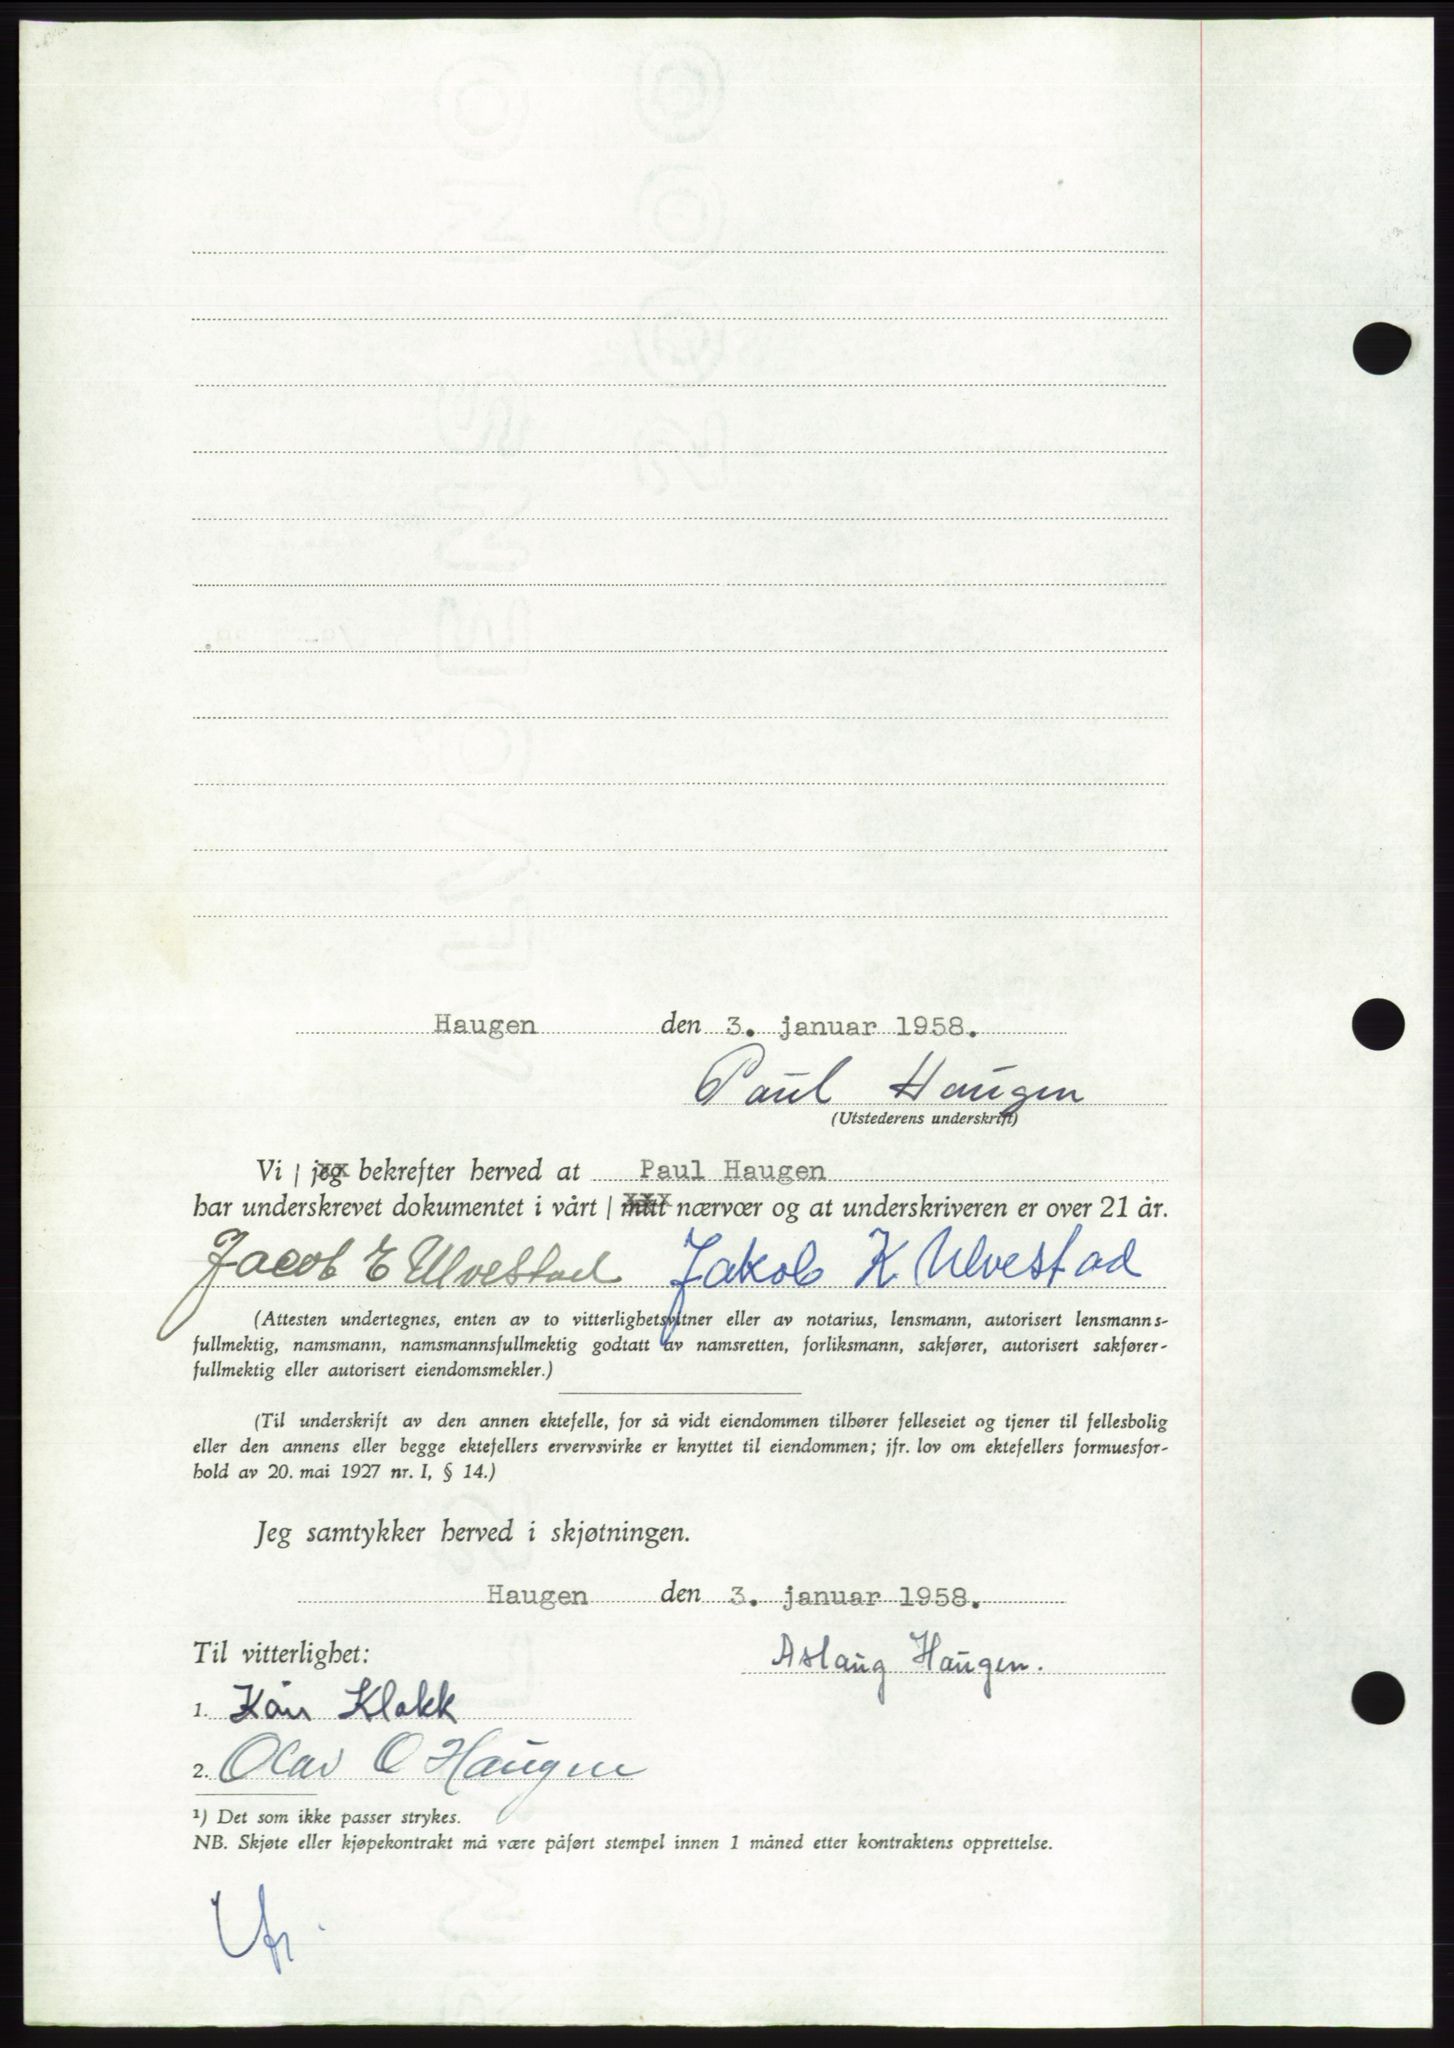 Haugen den 3. januar 1958.
Paul Haugen
(Utstederens underskrift)
Vi / jeg bekrefter herved at Paul Haugen
har underskrevet dokumentet i vårt / mitt nærvær og at underskriveren er over 21 år.
Jacob E Ulvestad Jakob K Ulvestad
(Attesten undertegnes, enten av to vitterlighetsvitner eller av notarius, lensmann, autorisert lensmanns-
fullmektig, namsmann, namsmannsfullmektig godtatt av namsretten, forliksmann, sakfører, autorisert sakfører-
fullmektig eller autorisert eiendomsmekler.)
(Til underskrift av den annen ektefelle, for så vidt eiendommen tilhører felleseiet og tjener til fellesbolig
eller den annens eller begge ektefellers ervervsvirke er knyttet til eiendommen; jfr. lov om ektefellers formuesfor-
hold av 20. mai 1927 nr. I, § 14.)
Jeg samtykker herved i skjøtningen.
Haugen den 3. januar 1958.
Til vitterlighet:
Aslaug Haugen.
1. Kår Klokk
2. Olav O Haugen
¹) Det som ikke passer strykes.
NB. Skjøte eller kjøpekontrakt må være påført stempel innen 1 måned etter kontraktens opprettelse.